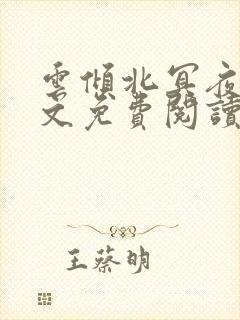 雲傾北冥夜
文免費閱讀
王蔡明